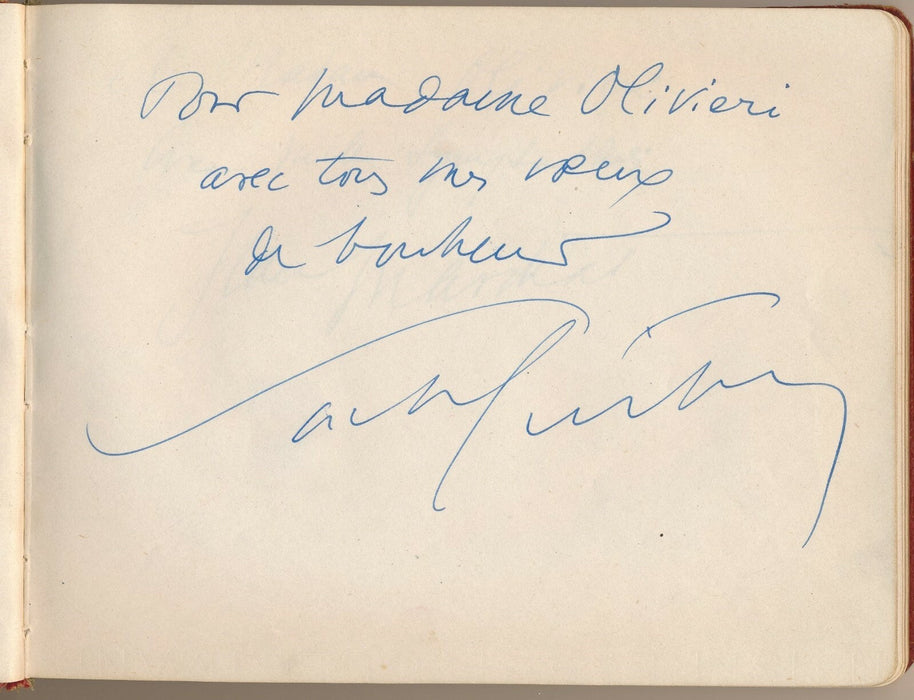 Pour madame Olivieri
avec tous mes vœux
de bonheur
Sacha Guitry